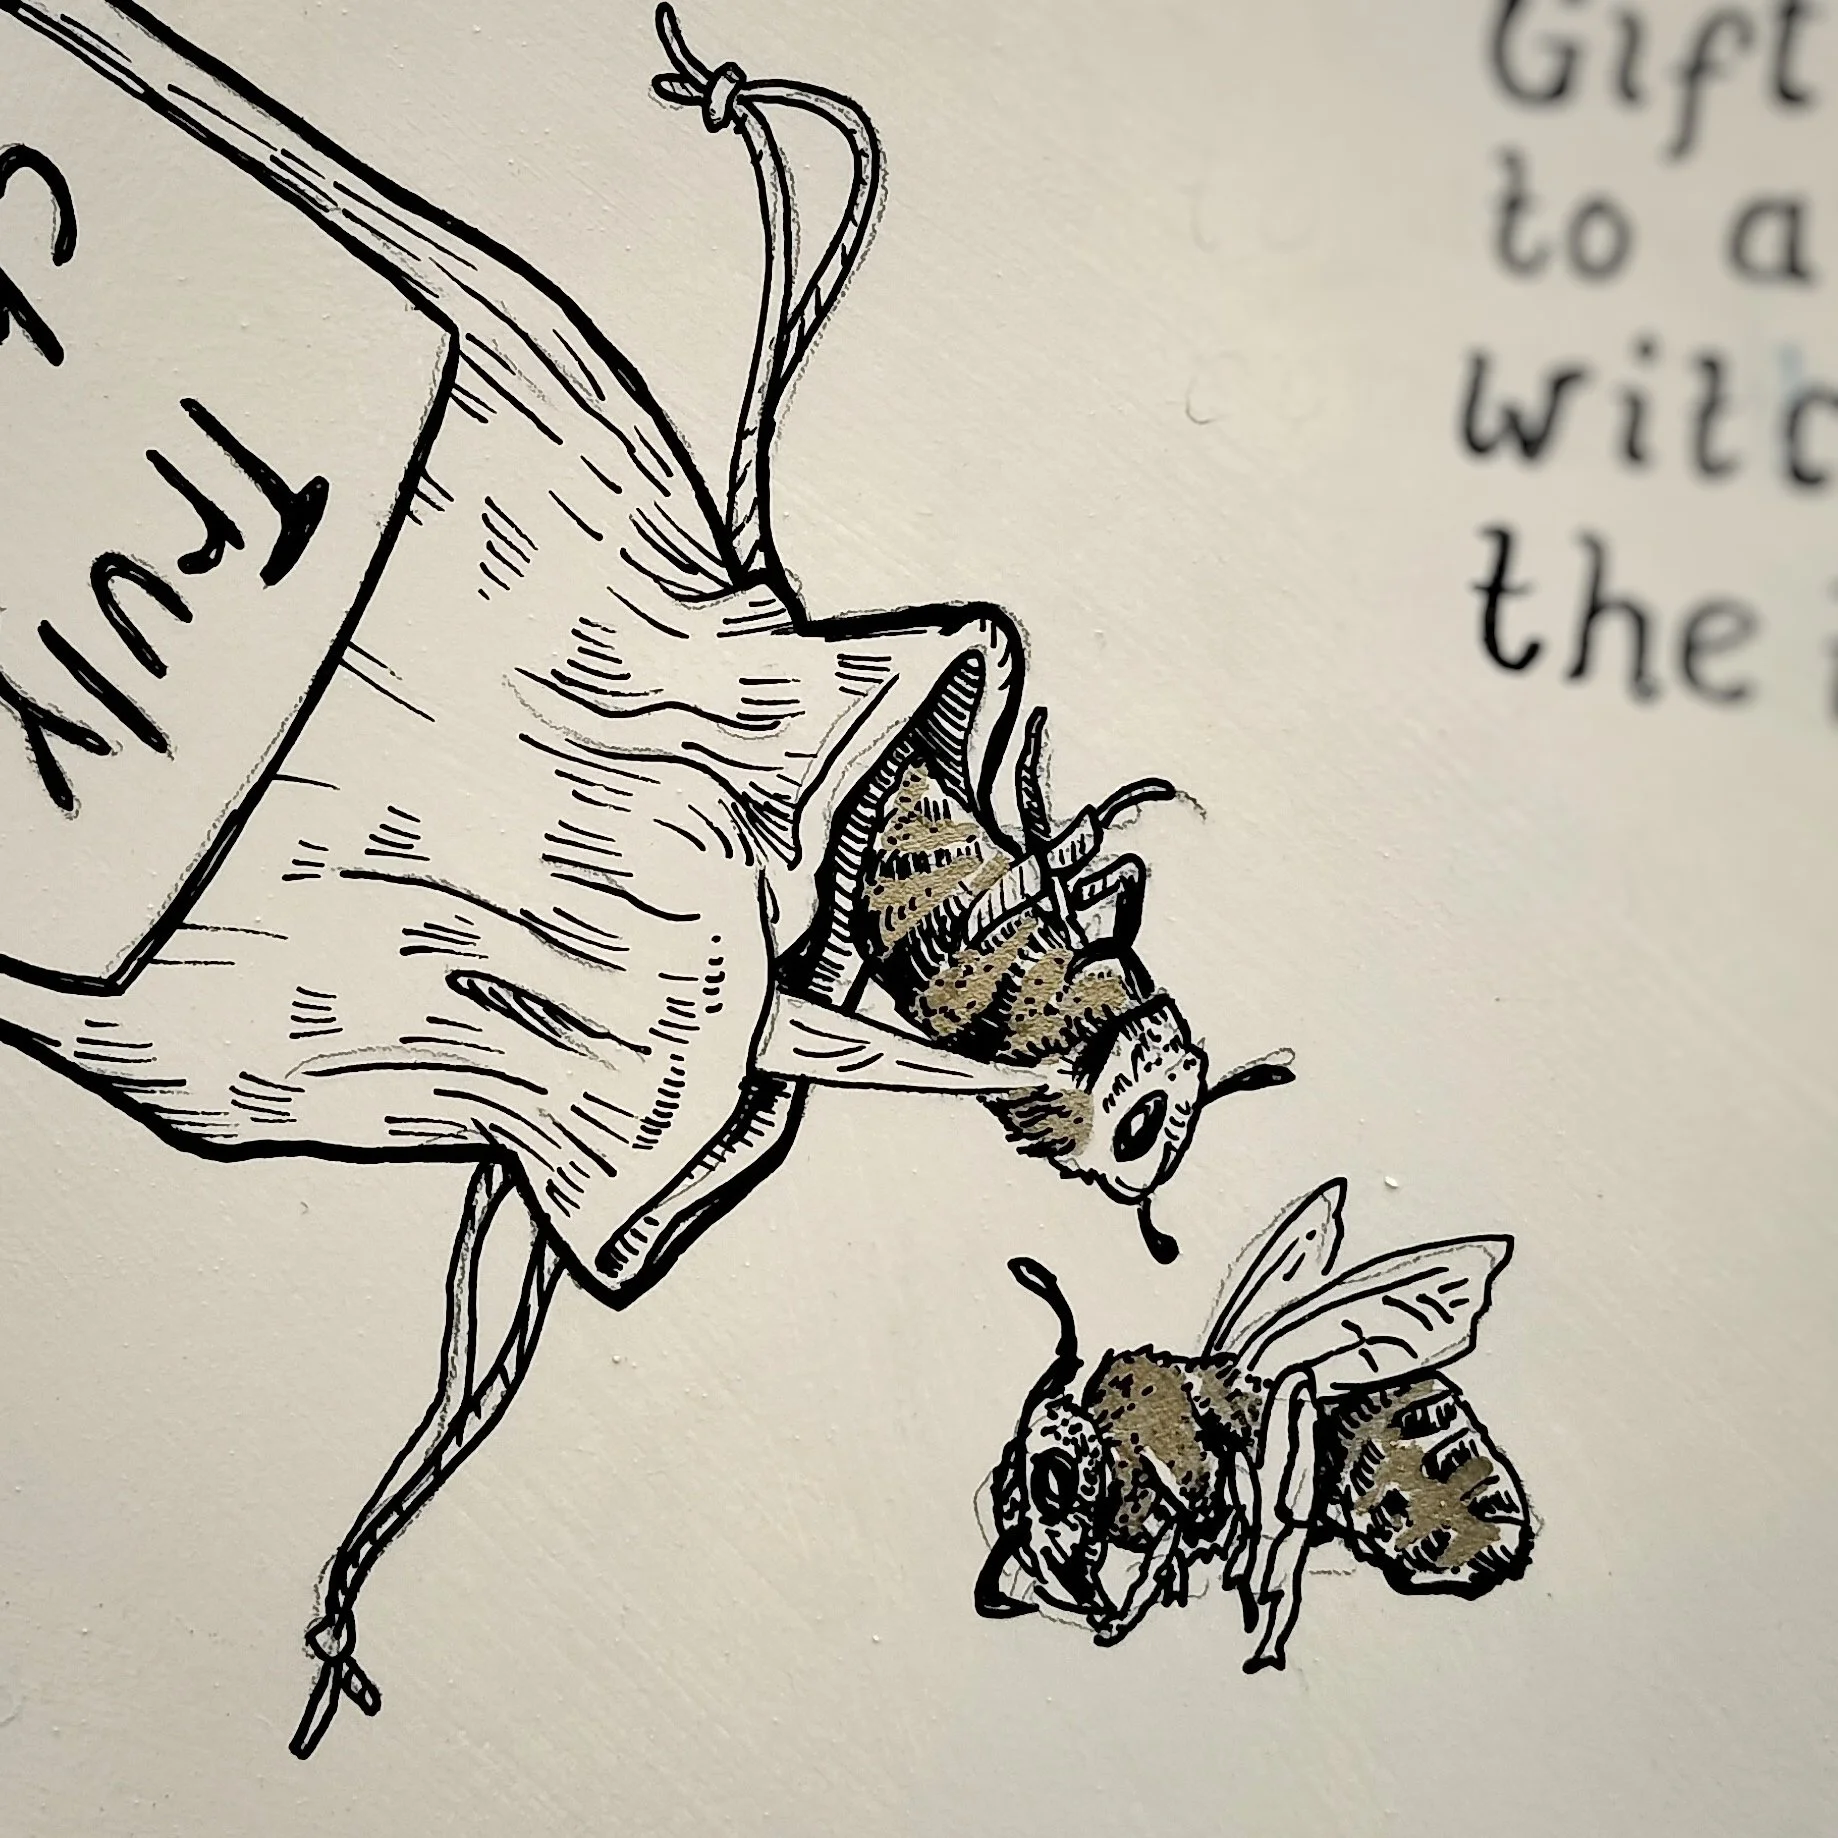 Gift
to a
witc
the
Truly